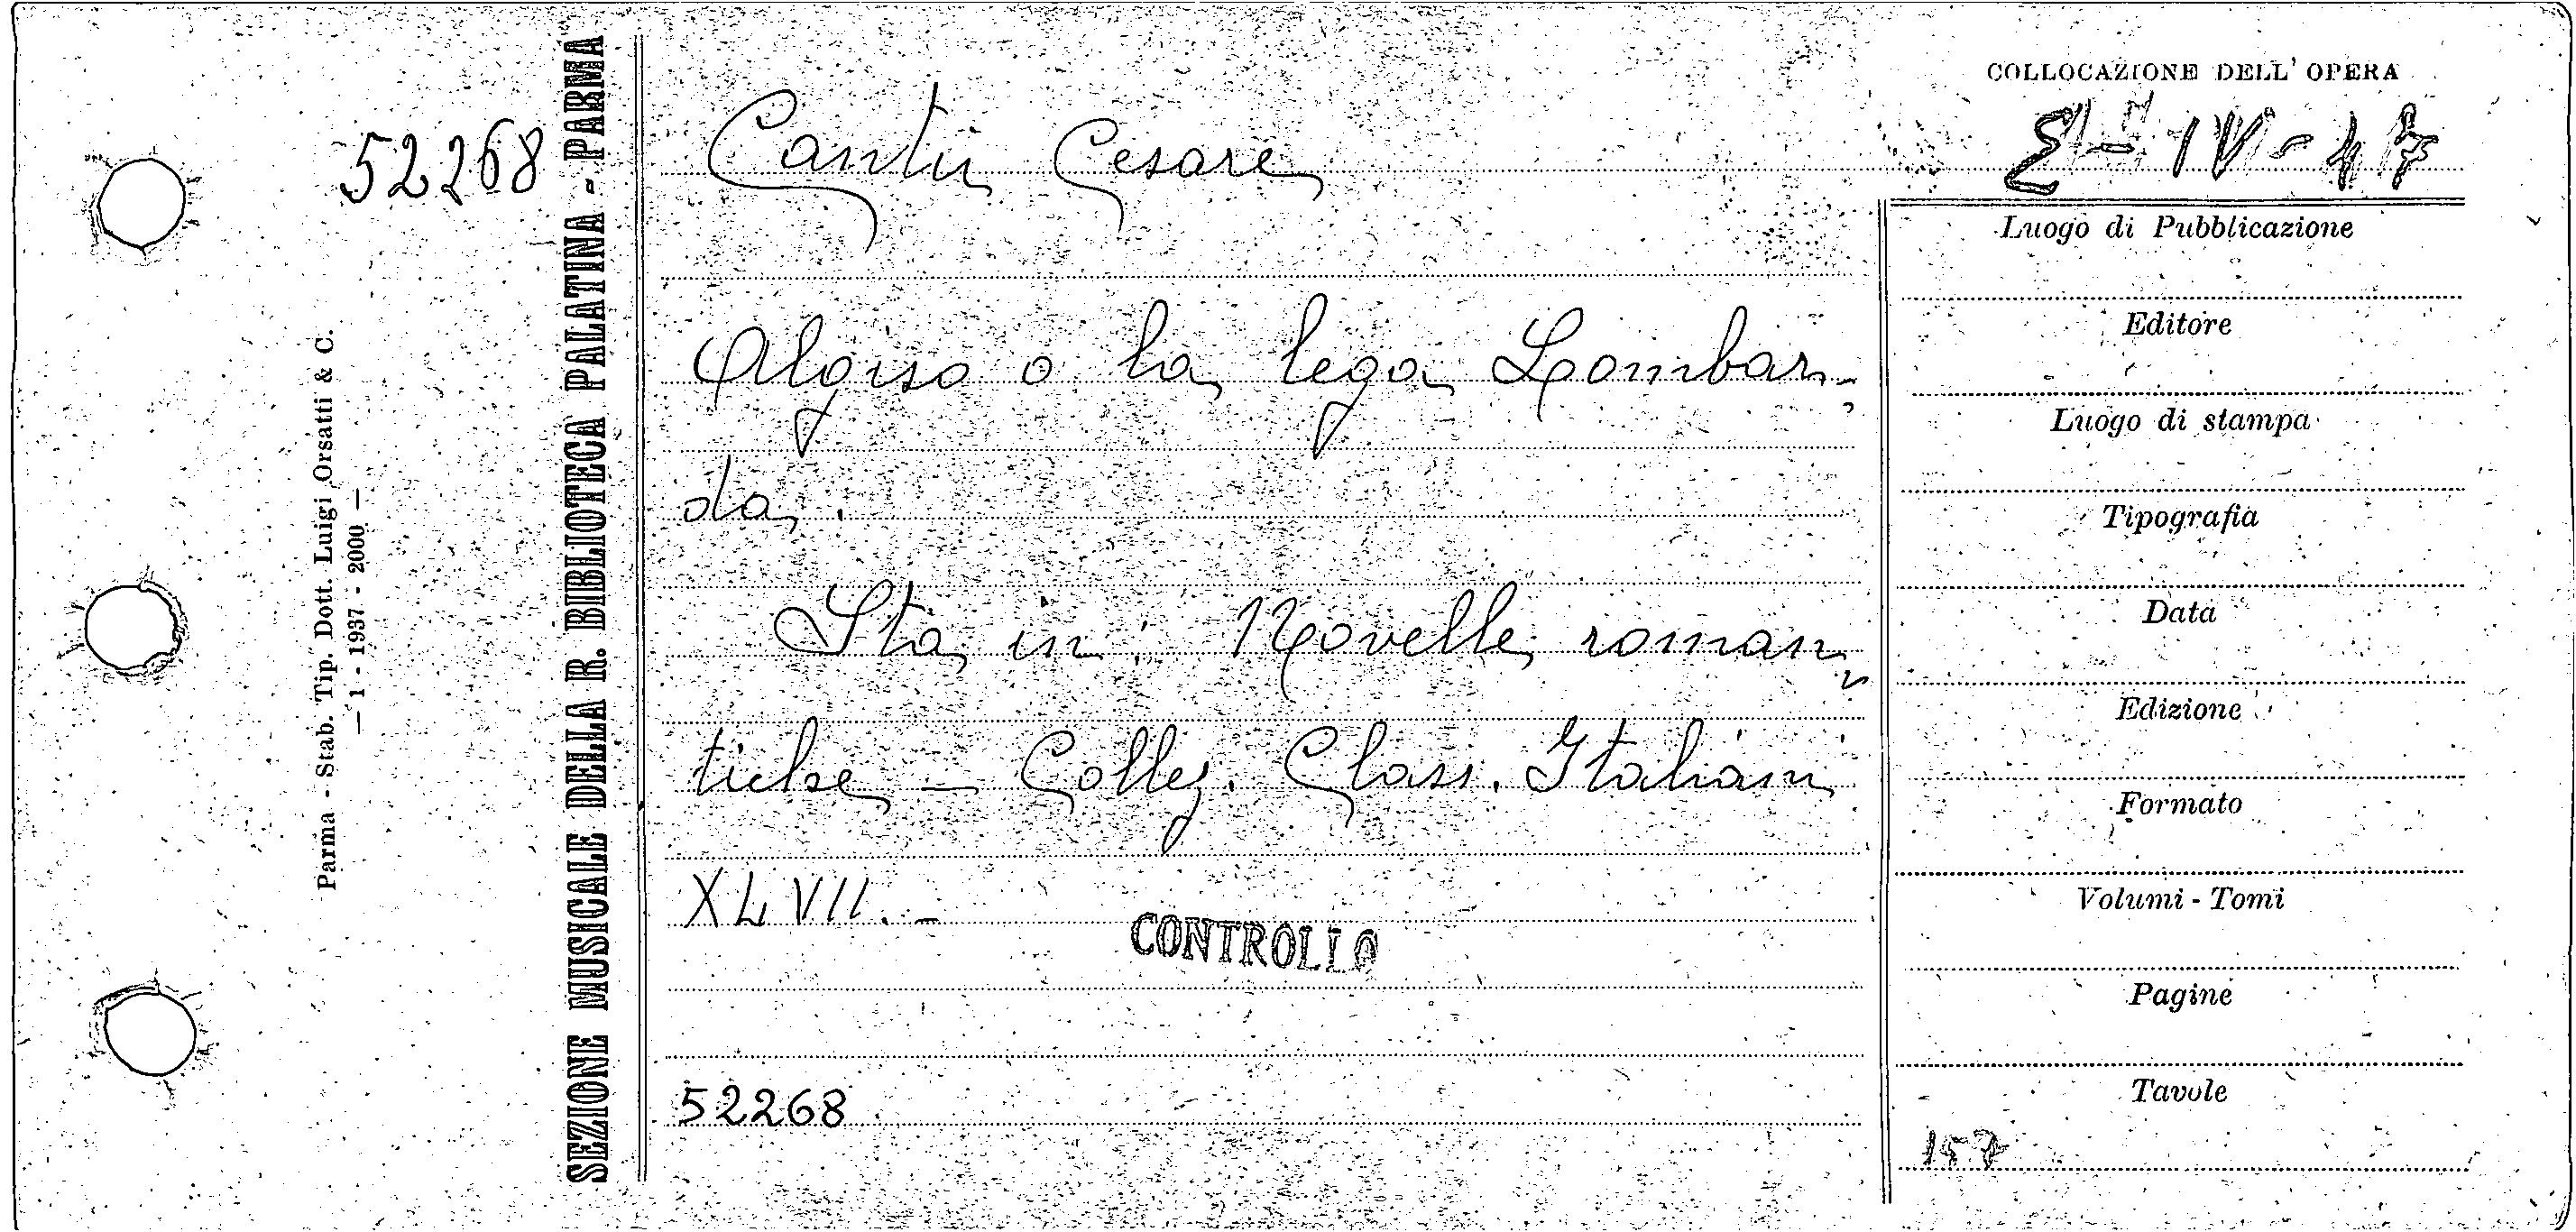 52268
Parma - Stab. Tip. Dott. Luigi Orsatti & C.
— 1 - 1937 - 2000 —
SEZIONE MUSICALE DELLA R. BIBLIOTECA PALATINA - PARMA
Cantù Cesare
Algiso o la lega Lombar-
da.
Sta in: Novelle roman
tiche - Collez. Class. Italiani
XLVII. -
CONTROLLO
52268
COLLOCAZIONE DELL' OPERA
Σ - IV - 47
Luogo di Pubblicazione
Editore
Luogo di stampa
Tipografia
Data
Edizione
Formato
Volumi - Tomi
Pagine
Tavole
157